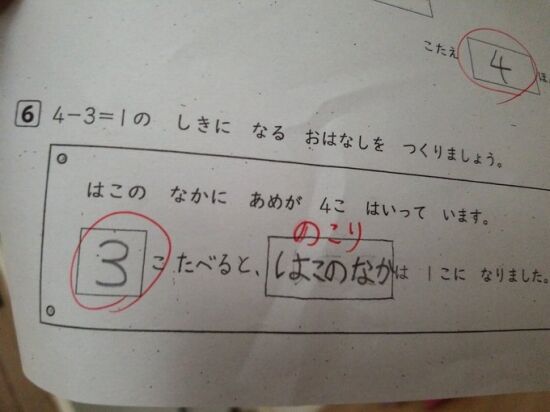 こたえ 4 ほ
6 4－3＝1の しきに なる おはなしを つくりましょう。
はこの なかに あめが 4こ はいって います。
のこり
3 こ たべると、はこのなかは 1こに なりました。